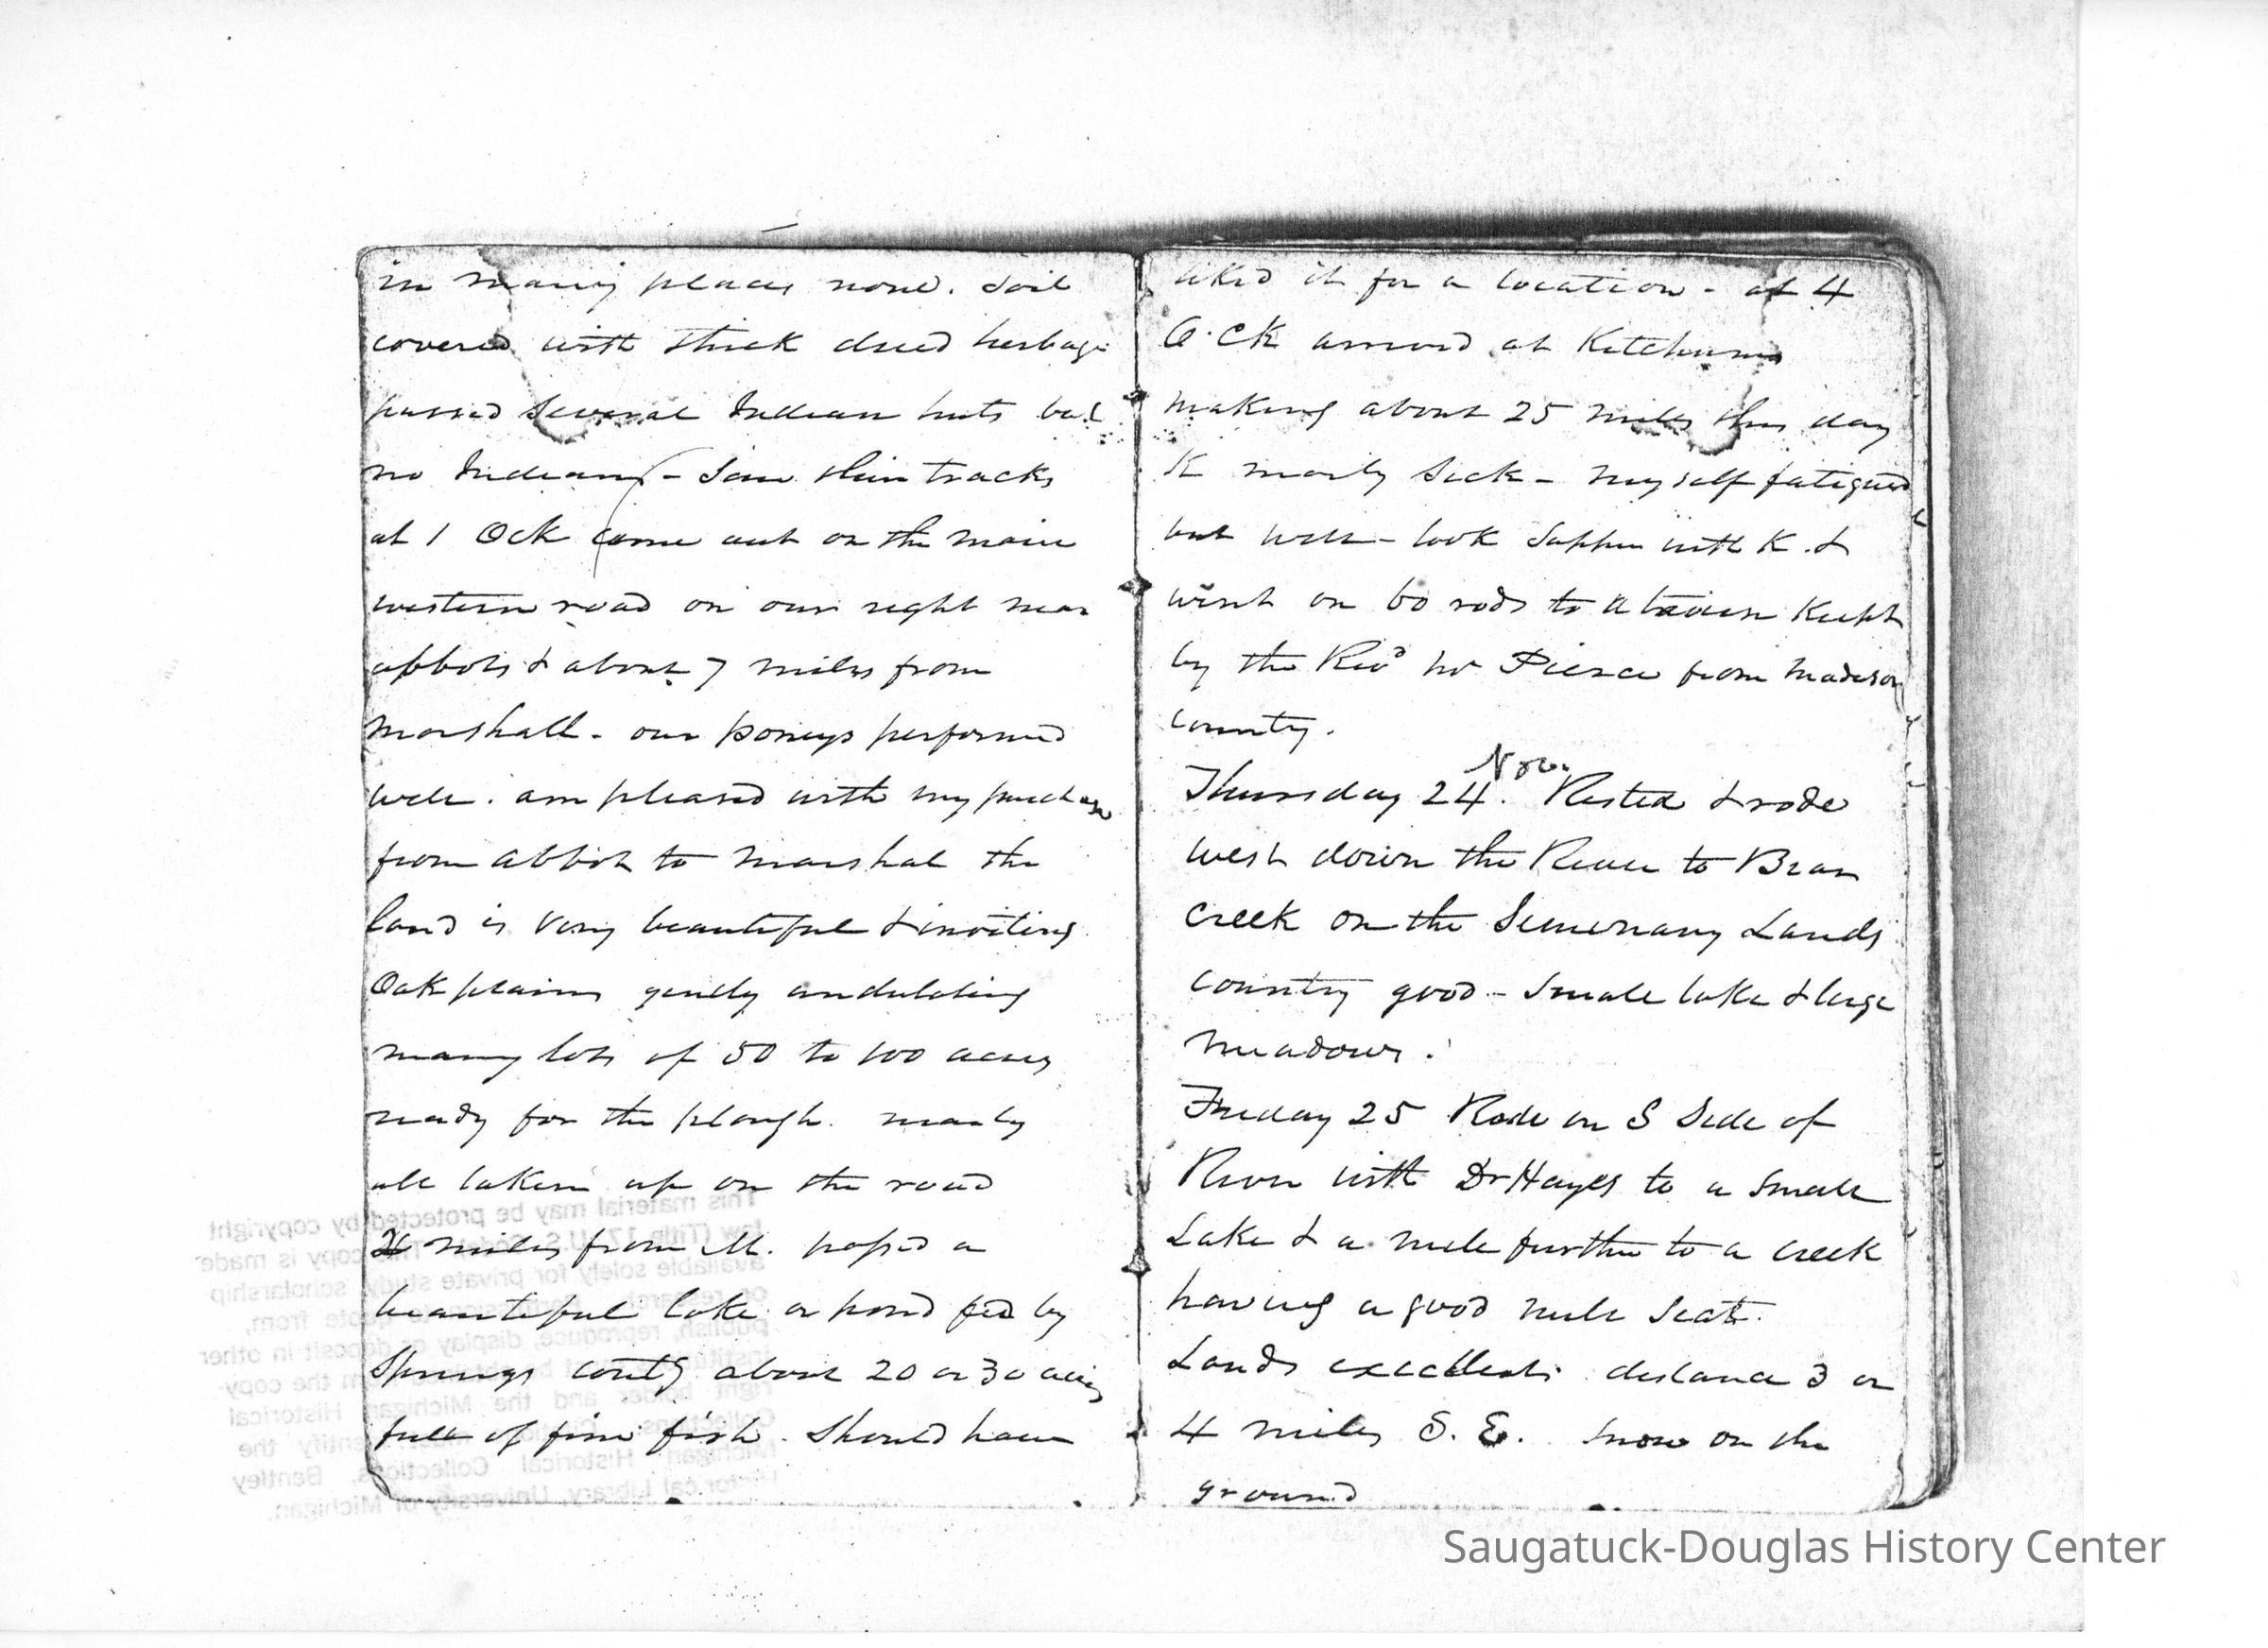 in many places none. Soil
covered with thick dried herbage
passed several Indian huts but
no Indians - Saw their tracks
at 1 Ock came out on the main
western road on our right near
abbots & about 7 miles from
Marshall - our poneys performed
well. am pleased with my purchase
from Abbot to Marshal the
land is very beautiful & inviting
Oak plains gently undulating
many lots of 50 to 100 acres
ready for the plough. nearly
all taken up on the road
miles from M. passed a
beautiful lake or pond fed by
Springs contg about 20 or 30 acres
full of fine fish. Should have
liked it for a location - at 4
O.Ck arrived at Ketchums
making about 25 miles this day
K nearly Sick - myself fatigued
but well - took Supper with K. &
went on 60 rods to a tavern Kept
by the Revd Mr Pierce from Madison
county.
Nov.
Thursday 24. Rested & rode
west down the River to
Creek on the Seminary Lands
country good - Small lake & large
meadows.
Friday 25 Rode on S Side of
River with Dr Hayes to a Small
Lake & a mile further to a creek
having a good mill Seat.
Lands excellent distance 3 or
4 miles S. E. Snow on the
ground
This material may be protected by copyright
law (Title 17 U.S. Code). This copy is made
available solely for private study, scholarship
or research.
publish, reproduce, display or deposit in other
right holder and the Michigan Historical
Collections.
Michigan Historical Collections, Bentley
Historical Library, University of Michigan.
Saugatuck-Douglas History Center